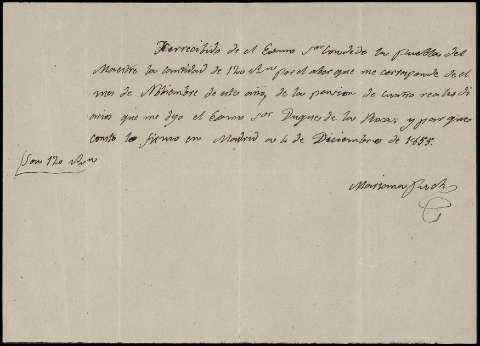 He recibido de el Exmo Sor Conde de la Puebla del
Maestre la cantidad de 120 rs vn por el aber que me corresponde de el
mes de Nobiembre de este año, de la pension de cuatro reales di
arios que me dejo el Exmo Sor Duque de la Roca, y para que
conste lo firmo en Madrid a 4 de Diciembre de 1855.
Son 120 rs vn
Mariana